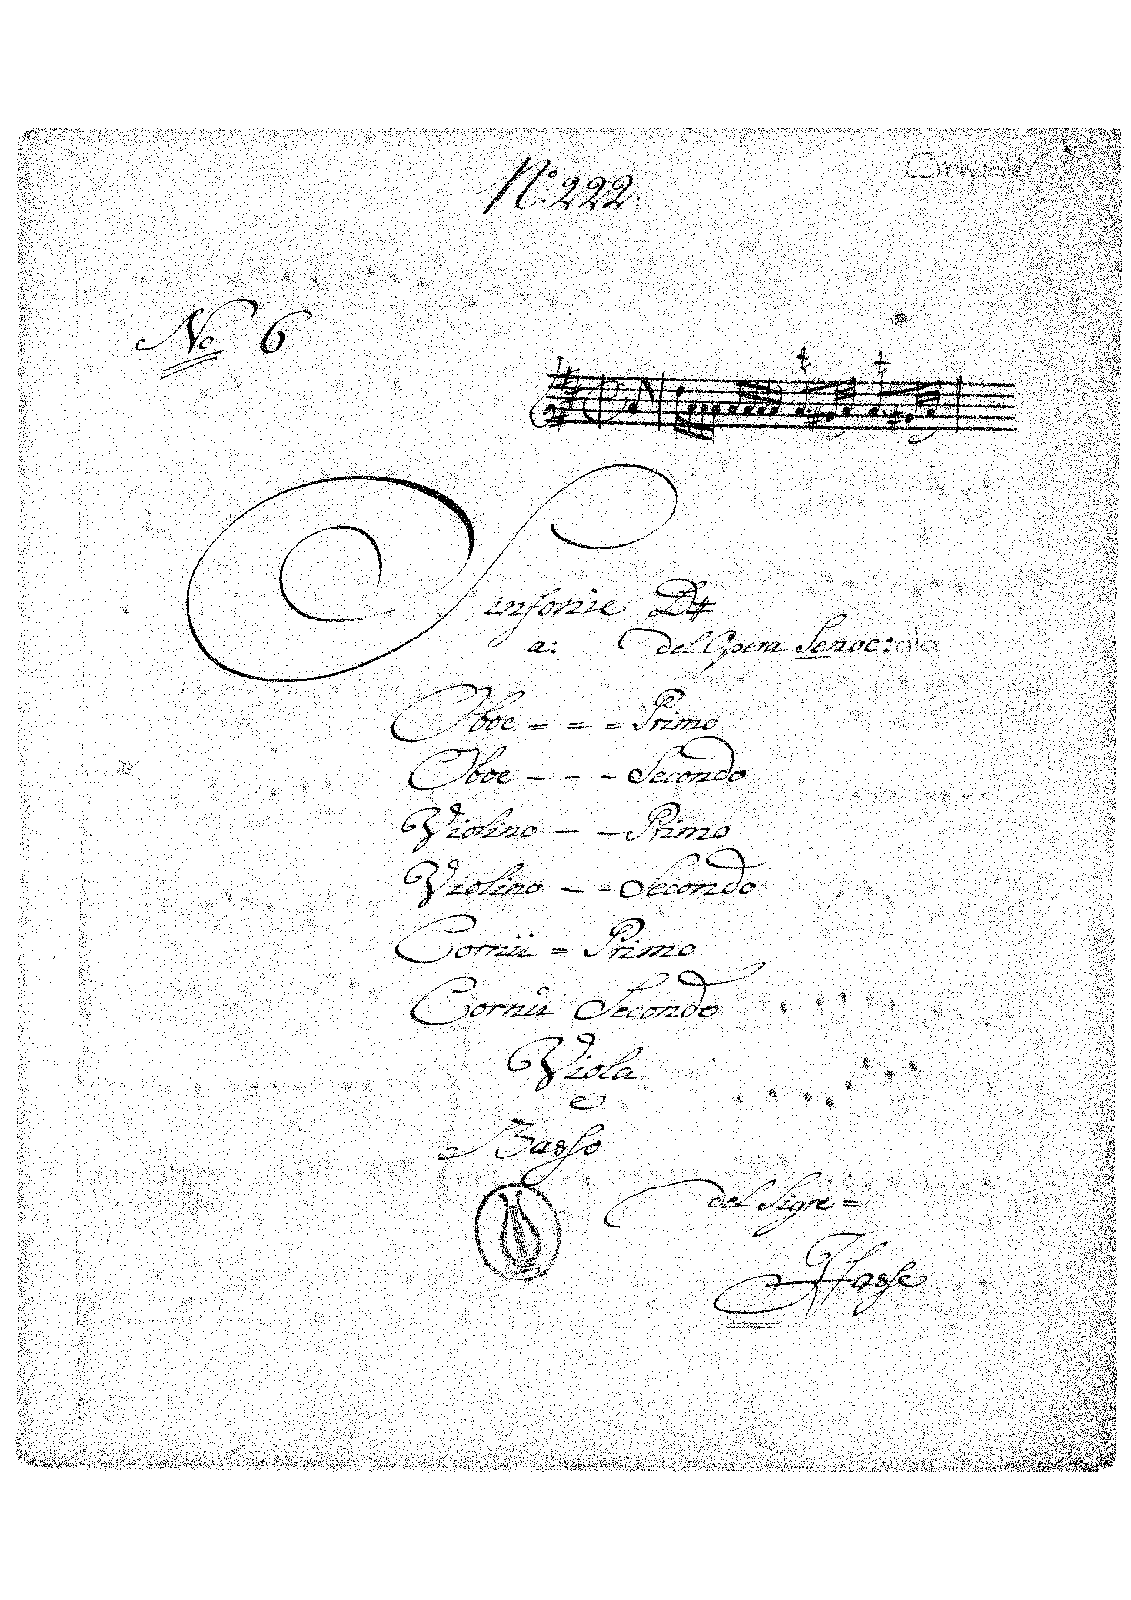 N.º 222.
No 6
Sinfonie D#
a: del Opera Senoc:
Oboe = = = Primo
Oboe - - - Secondo
Violino - - Primo
Violino - - Secondo
Cornü = Primo
Cornŭ Secondo
Viola
e
Basso
del Sigre =
Hasse